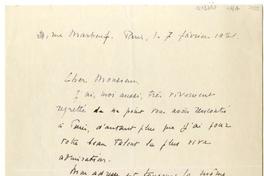 rue Marbeuf. Paris, le 7 février 1921.
Cher Monsieur
J'ai, moi aussi, très vivement
regretté de ne point vous avoir rencontré
à Paris, d'autant plus que j'ai pour
votre beau talent la plus vive
admiration.
Mon adresse est toujours la même